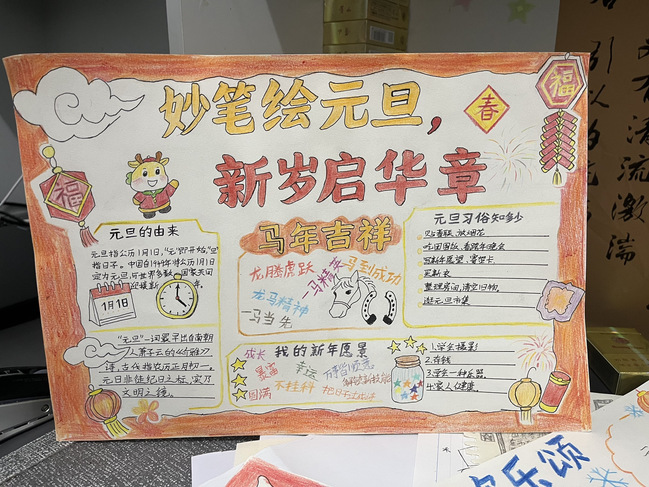 妙笔绘元旦,
新岁启华章
福
春
福
元旦的由来
元旦指公历1月1日,"元"即开始,"旦"
指日子。中国自1949年将公历1月1日
定为元旦,
1月1日
"元旦"一词最早出自南朝
人萧子云的《介雅》
诗,古代指农历正月初一。
元日非徒纪日之标,实乃
文明之镜。
马年吉祥
龙腾虎跃
马到成功
龙马精神
一马当先
元旦习俗知多少
吃团圆饭,看跨年晚会
写新年愿望、寄贺卡
买新衣
整理房间,清空旧物。
逛元旦市集
我的新年愿景
成长
暴富
幸运
圆满
不挂科
解锁新技能
1.学会摄影
2.存钱
3.学会一种乐器
4.家人健康。
乐颂